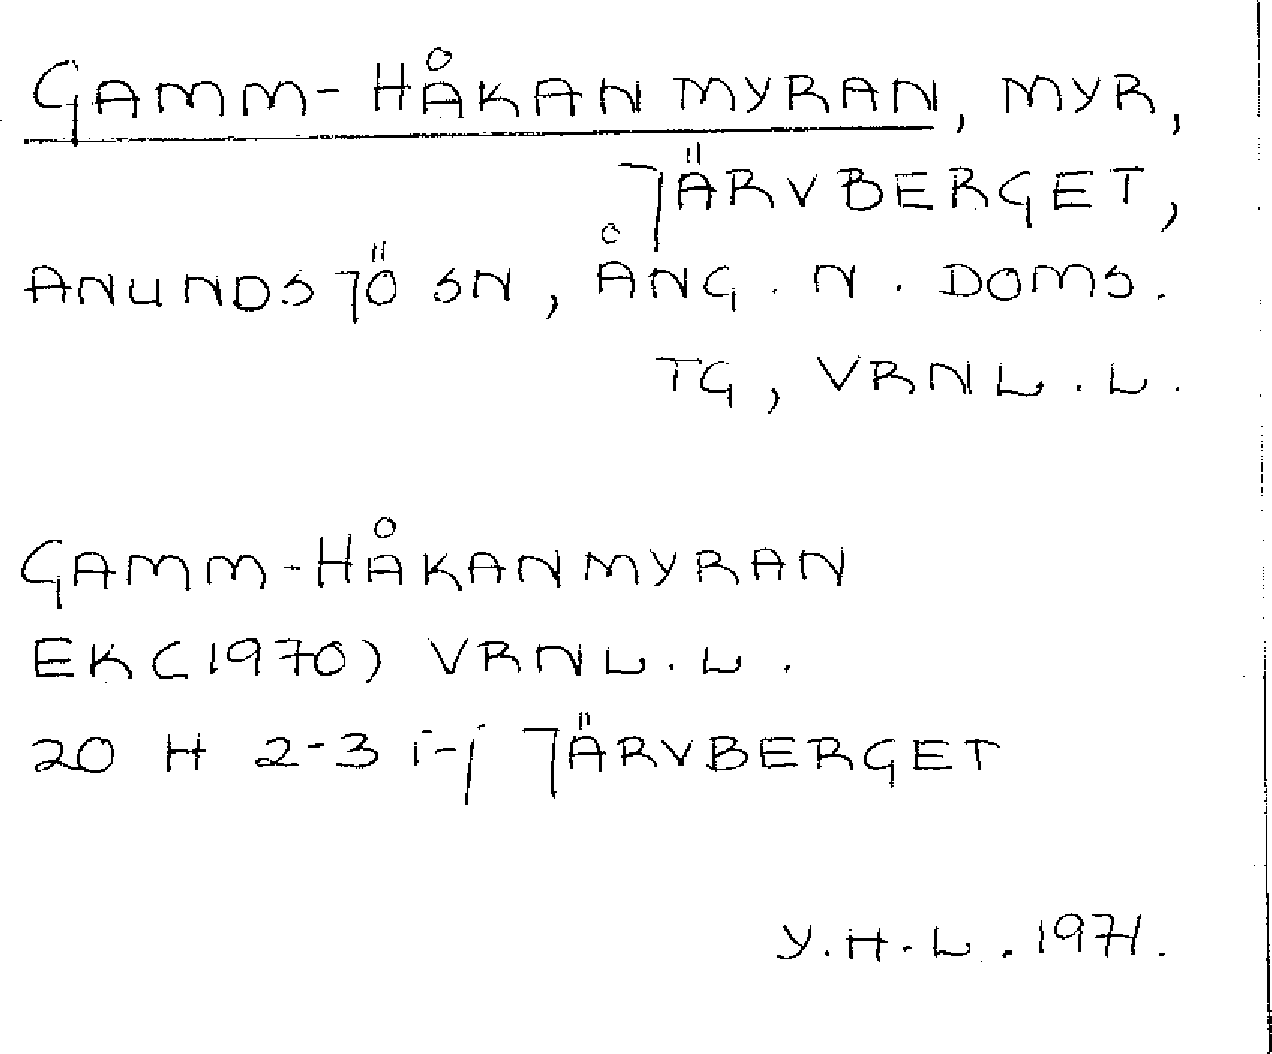 GAMM-HÅKANMYRAN, MYR,
JÄRVBERGET,
ANUNDSJÖ SN, ÅNG. N. DOMS.
TG, VRNL.L.
GAMM-HÅKANMYRAN
EK(1970) VRNL.L.
20 H 2-3 i-j JÄRVBERGET
Y.H.L. 1971.